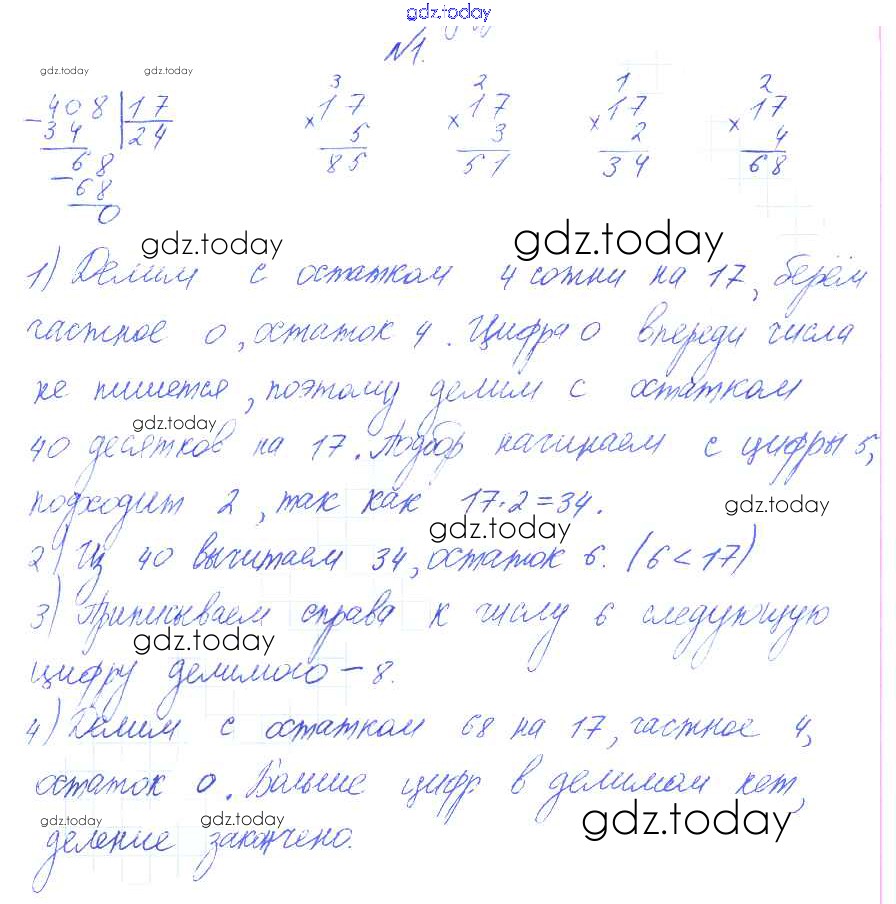 gdz.today
№1.
gdz.today gdz.today
3 2 1 2
- 408 | 17 × 17 × 17 × 17 × 17
34 | 24 5 3 2 4
68 85 51 34 68
- 68
0
gdz.today gdz.today
1) Делим с остатком 4 сотни на 17, берём
частное 0, остаток 4. Цифра 0 впереди числа
не пишется, поэтому делим с остатком
gdz.today
40 десятков на 17. Подбор начинаем с цифры 5,
подходит 2, так как 17·2=34.
gdz.today
gdz.today
2) Из 40 вычитаем 34, остаток 6. (6<17)
3) Приписываем справа к числу 6 следующую
gdz.today
цифру делимого – 8.
4) Делим с остатком 68 на 17, частное 4,
остаток 0. Больше цифр в делимом нет,
gdz.today gdz.today gdz.today
деление закончено.